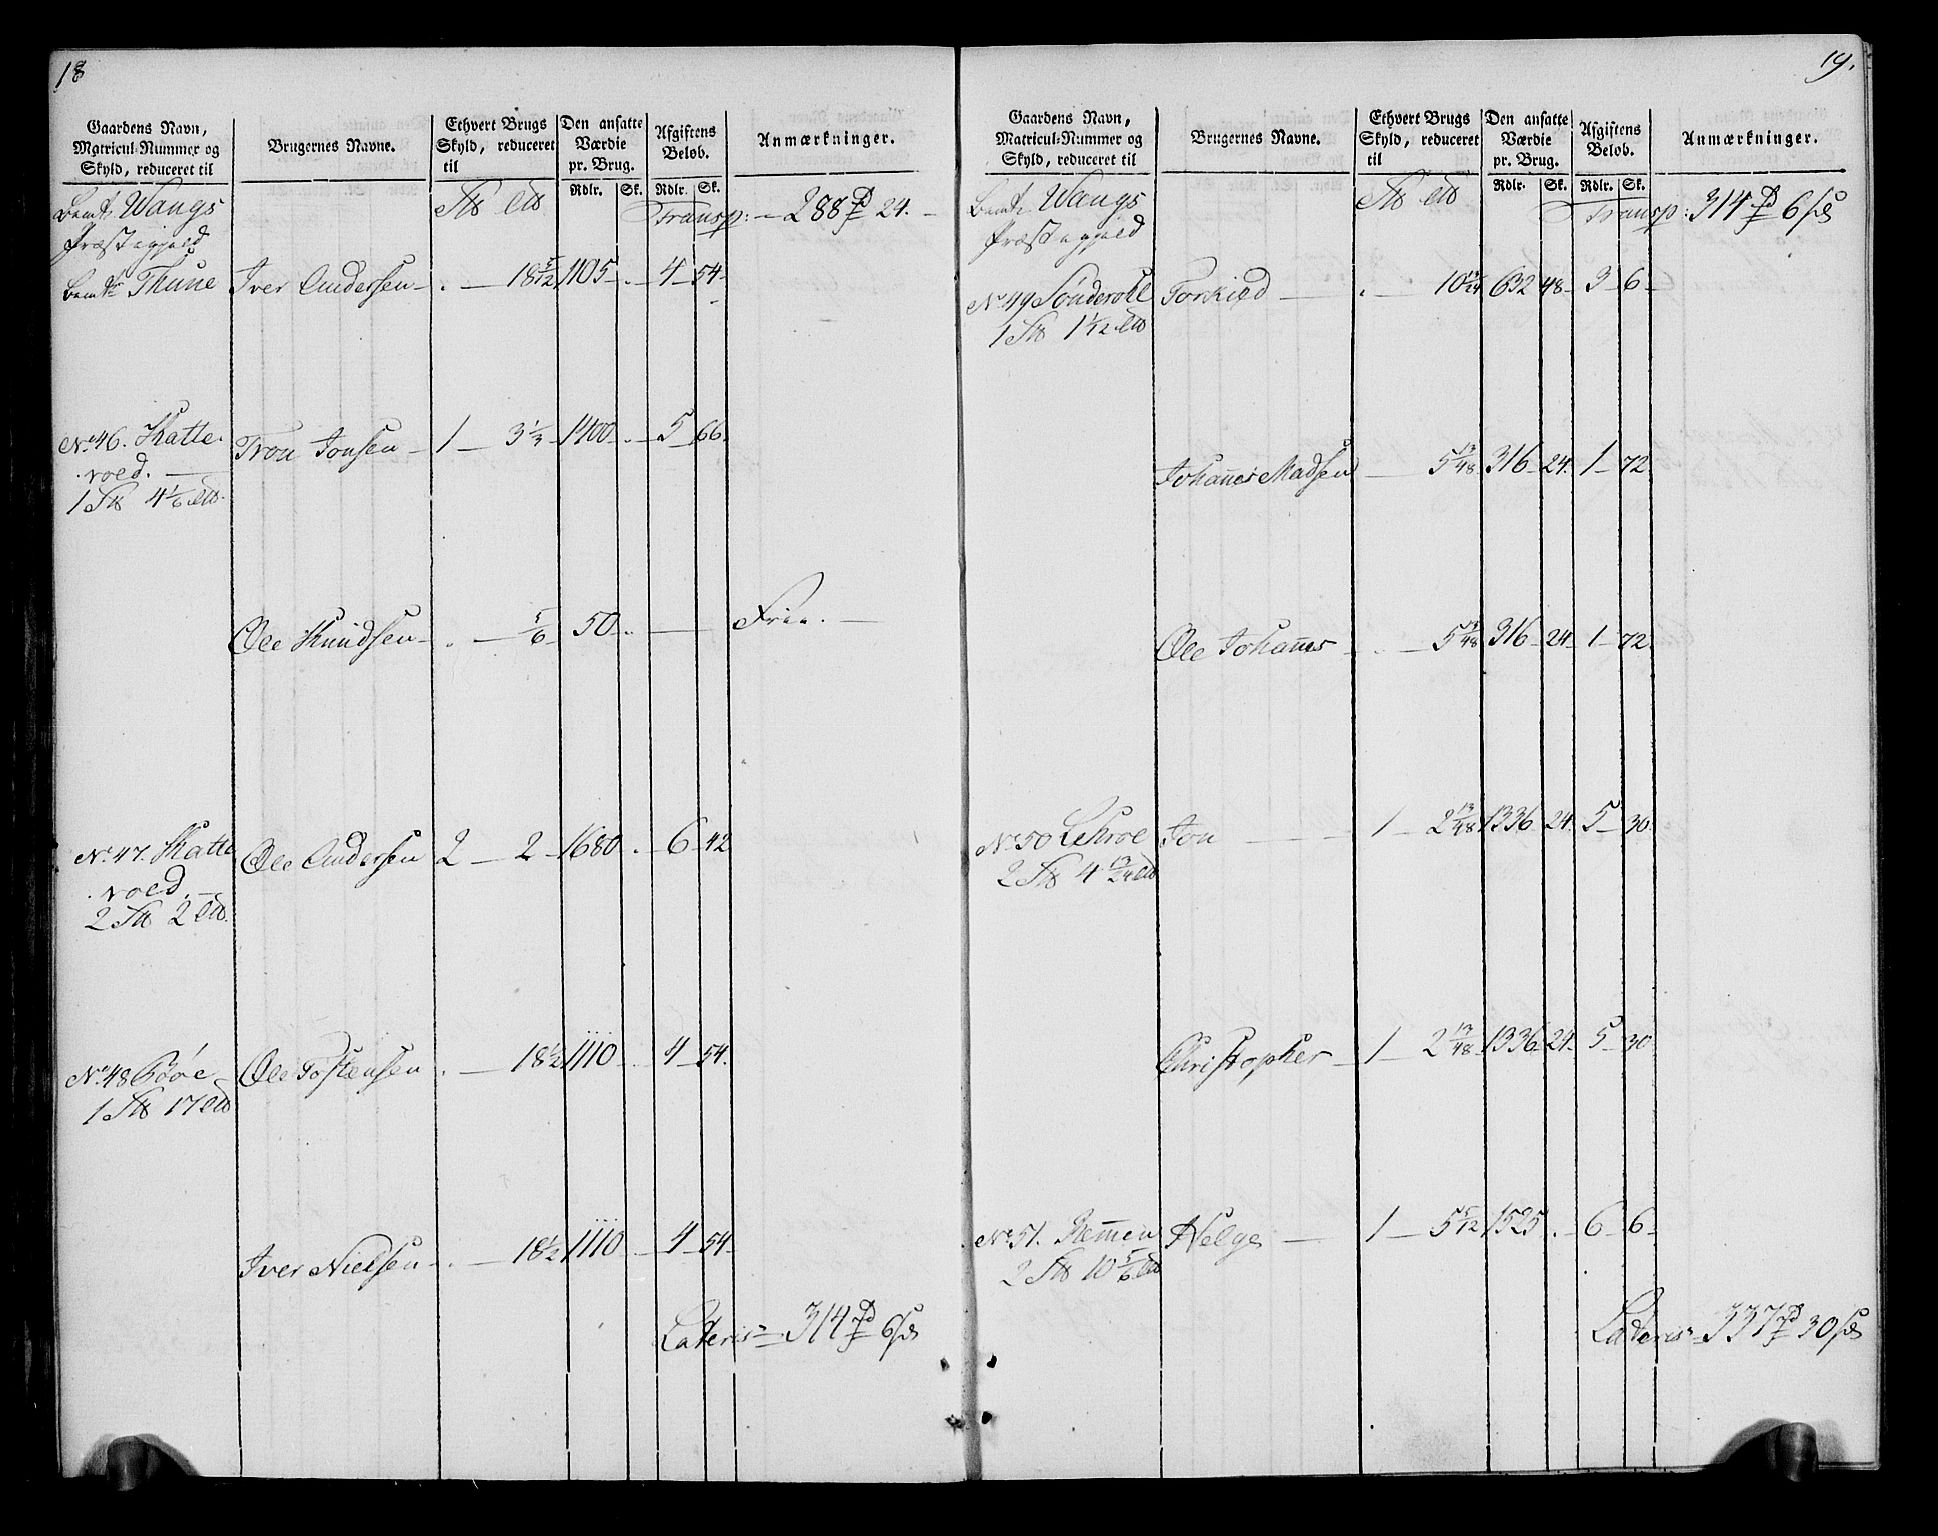 18
Gaardens Navn, Matricul-Nummer og Skyld, reduceret til
Brugernes Navne.
Ethvert Brugs Skyld, reduceret til
Den ansatte Værdie pr. Brug.
Rdlr. Sk.
Afgiftens Beløb.
Rdlr. Sk.
Anmærkninger.
Wangs
Præstegjeld
Transp: 288 24.
Thune Iver Andersen 18 5/12 1105 4 54
No 46. Skatte-
vold.
1 4 1/6
Tron Jonsen 1 3 1/3 1400 5 66
Ole Knudsen 5/6 50 Frie.
No 47. Skatte
vold.
2 2
Ole Andersen 2 2 1680 6 42
No 48 Bøe
1 17
Ole Tostensen 18 1/2 1110 4 54
Iver Nielsen 18 1/2 1110 4 54
Lateris 314 6
19.
Gaardens Navn, Matricul-Nummer og Skyld, reduceret til
Brugernes Navne.
Ethvert Brugs Skyld, reduceret til
Den ansatte Værdie pr. Brug.
Rdlr. Sk.
Afgiftens Beløb.
Rdlr. Sk.
Anmærkninger.
Wangs
Præstegjeld
Transp: 314 6
No 49 Sønderoll
1 1 1/12
Torkild 10 13/24 632 48 3 6
Johannes Madsen 5 13/48 316 24 1 72
Ole Johannes 5 13/48 316 24 1 72
No 50 Lehroe
2 4 13/24
Jon 1 2 13/48 1336 24 5 30
Christopher 1 2 13/48 1336 24 5 30
No 51. Remmen
2 10 5/6
Helge 1 5 5/12 1525 6 6
Lateris 337 30